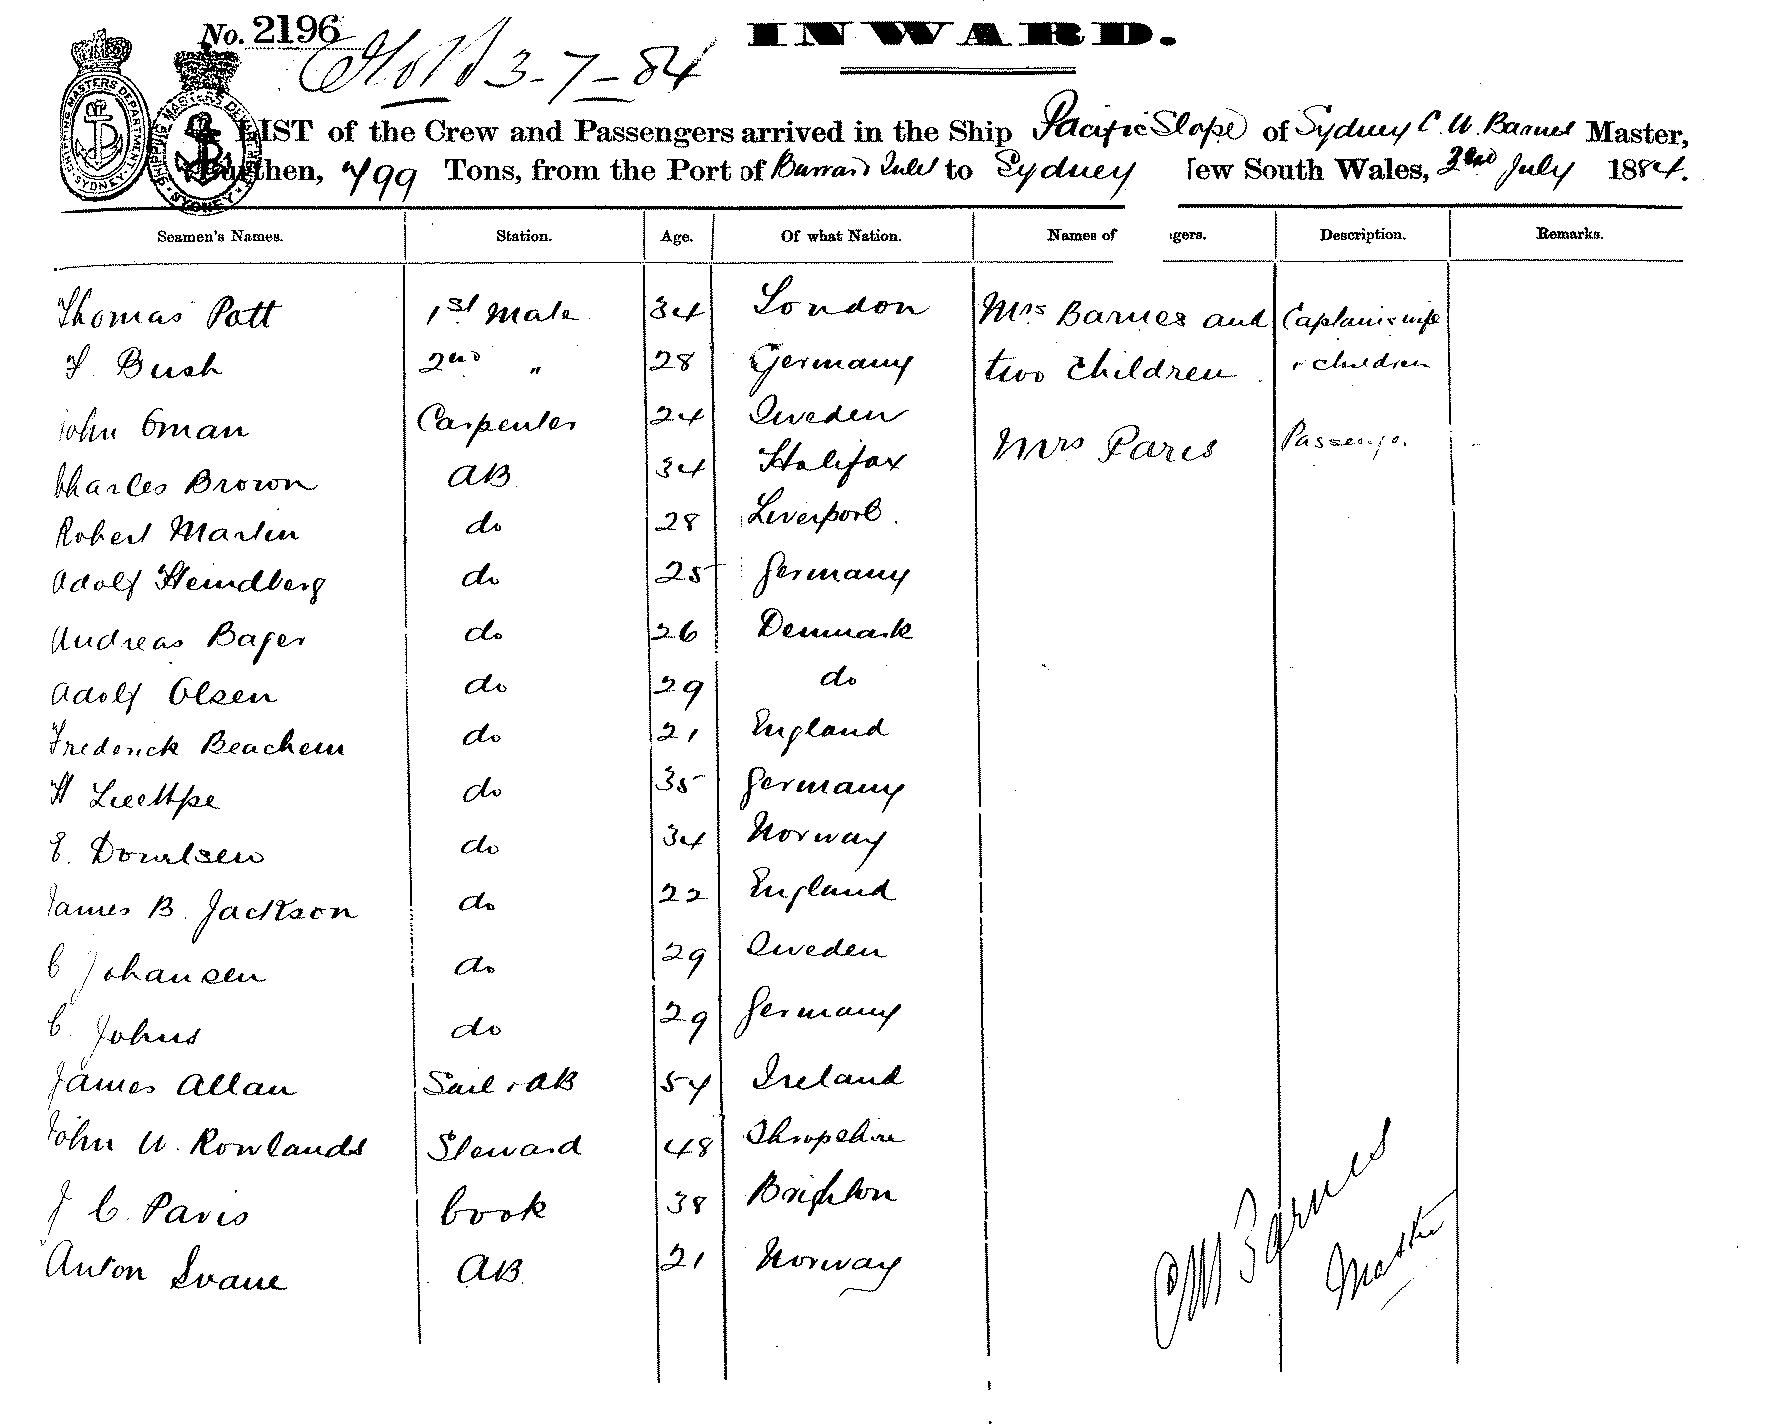 No. 2196
3-7-84
INWARD.
LIST of the Crew and Passengers arrived in the Ship Pacific Slope of Sydney C. W. Barnes Master,
Burthen, 799 Tons, from the Port of Burrard Inlet to Sydney New South Wales, 2nd July 1884.
SHIPPING MASTERS DEPARTMENT SYDNEY
SHIPPING MASTERS DEPARTMENT SYDNEY
Seamen's Names. Station. Age. Of what Nation. Names of gers. Description. Remarks.
Thomas Patt 1st Mate 34 London Mrs Barnes and Captains wife
F. Bush 2nd " 28 Germany two children + children
John Oman Carpenter 24 Sweden
Mrs Paris Passenger
Charles Brown AB 34 Halifax
Robert Martin do 28 Liverpool.
Adolf Heindberg do 25 Germany
Andreas Bager do 26 Denmark
Adolf Olsen do 29 do
Frederick Beachem do 21 England
H do 35 Germany
E. do 34 Norway
James B. Jackson do 22 England
C Johansen do 29 Sweden
C. Johns do 29 Germany
James Allan Sail + AB 54 Ireland
John W. Rowlands Steward 48 Shropshire
J C. Paris Cook 38 Brighton
Anton Svane AB 21 Norway
CW Barnes
Master